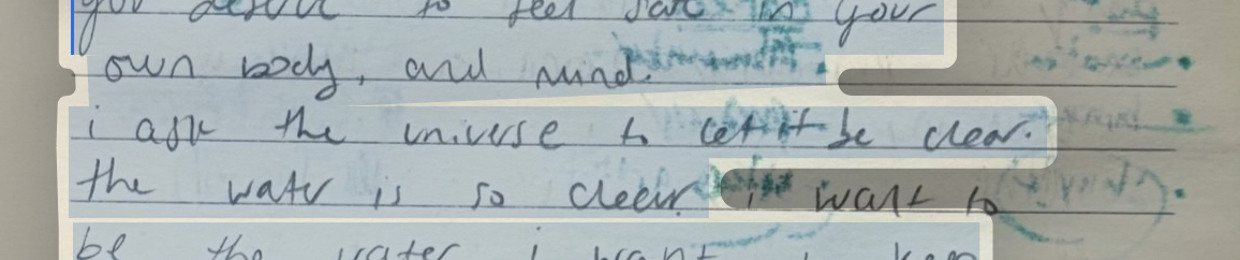 you deserve to feel safe in your
own body, and mind.
i ask the universe to let it be clear.
the water is so clear. i want to
be the water i want